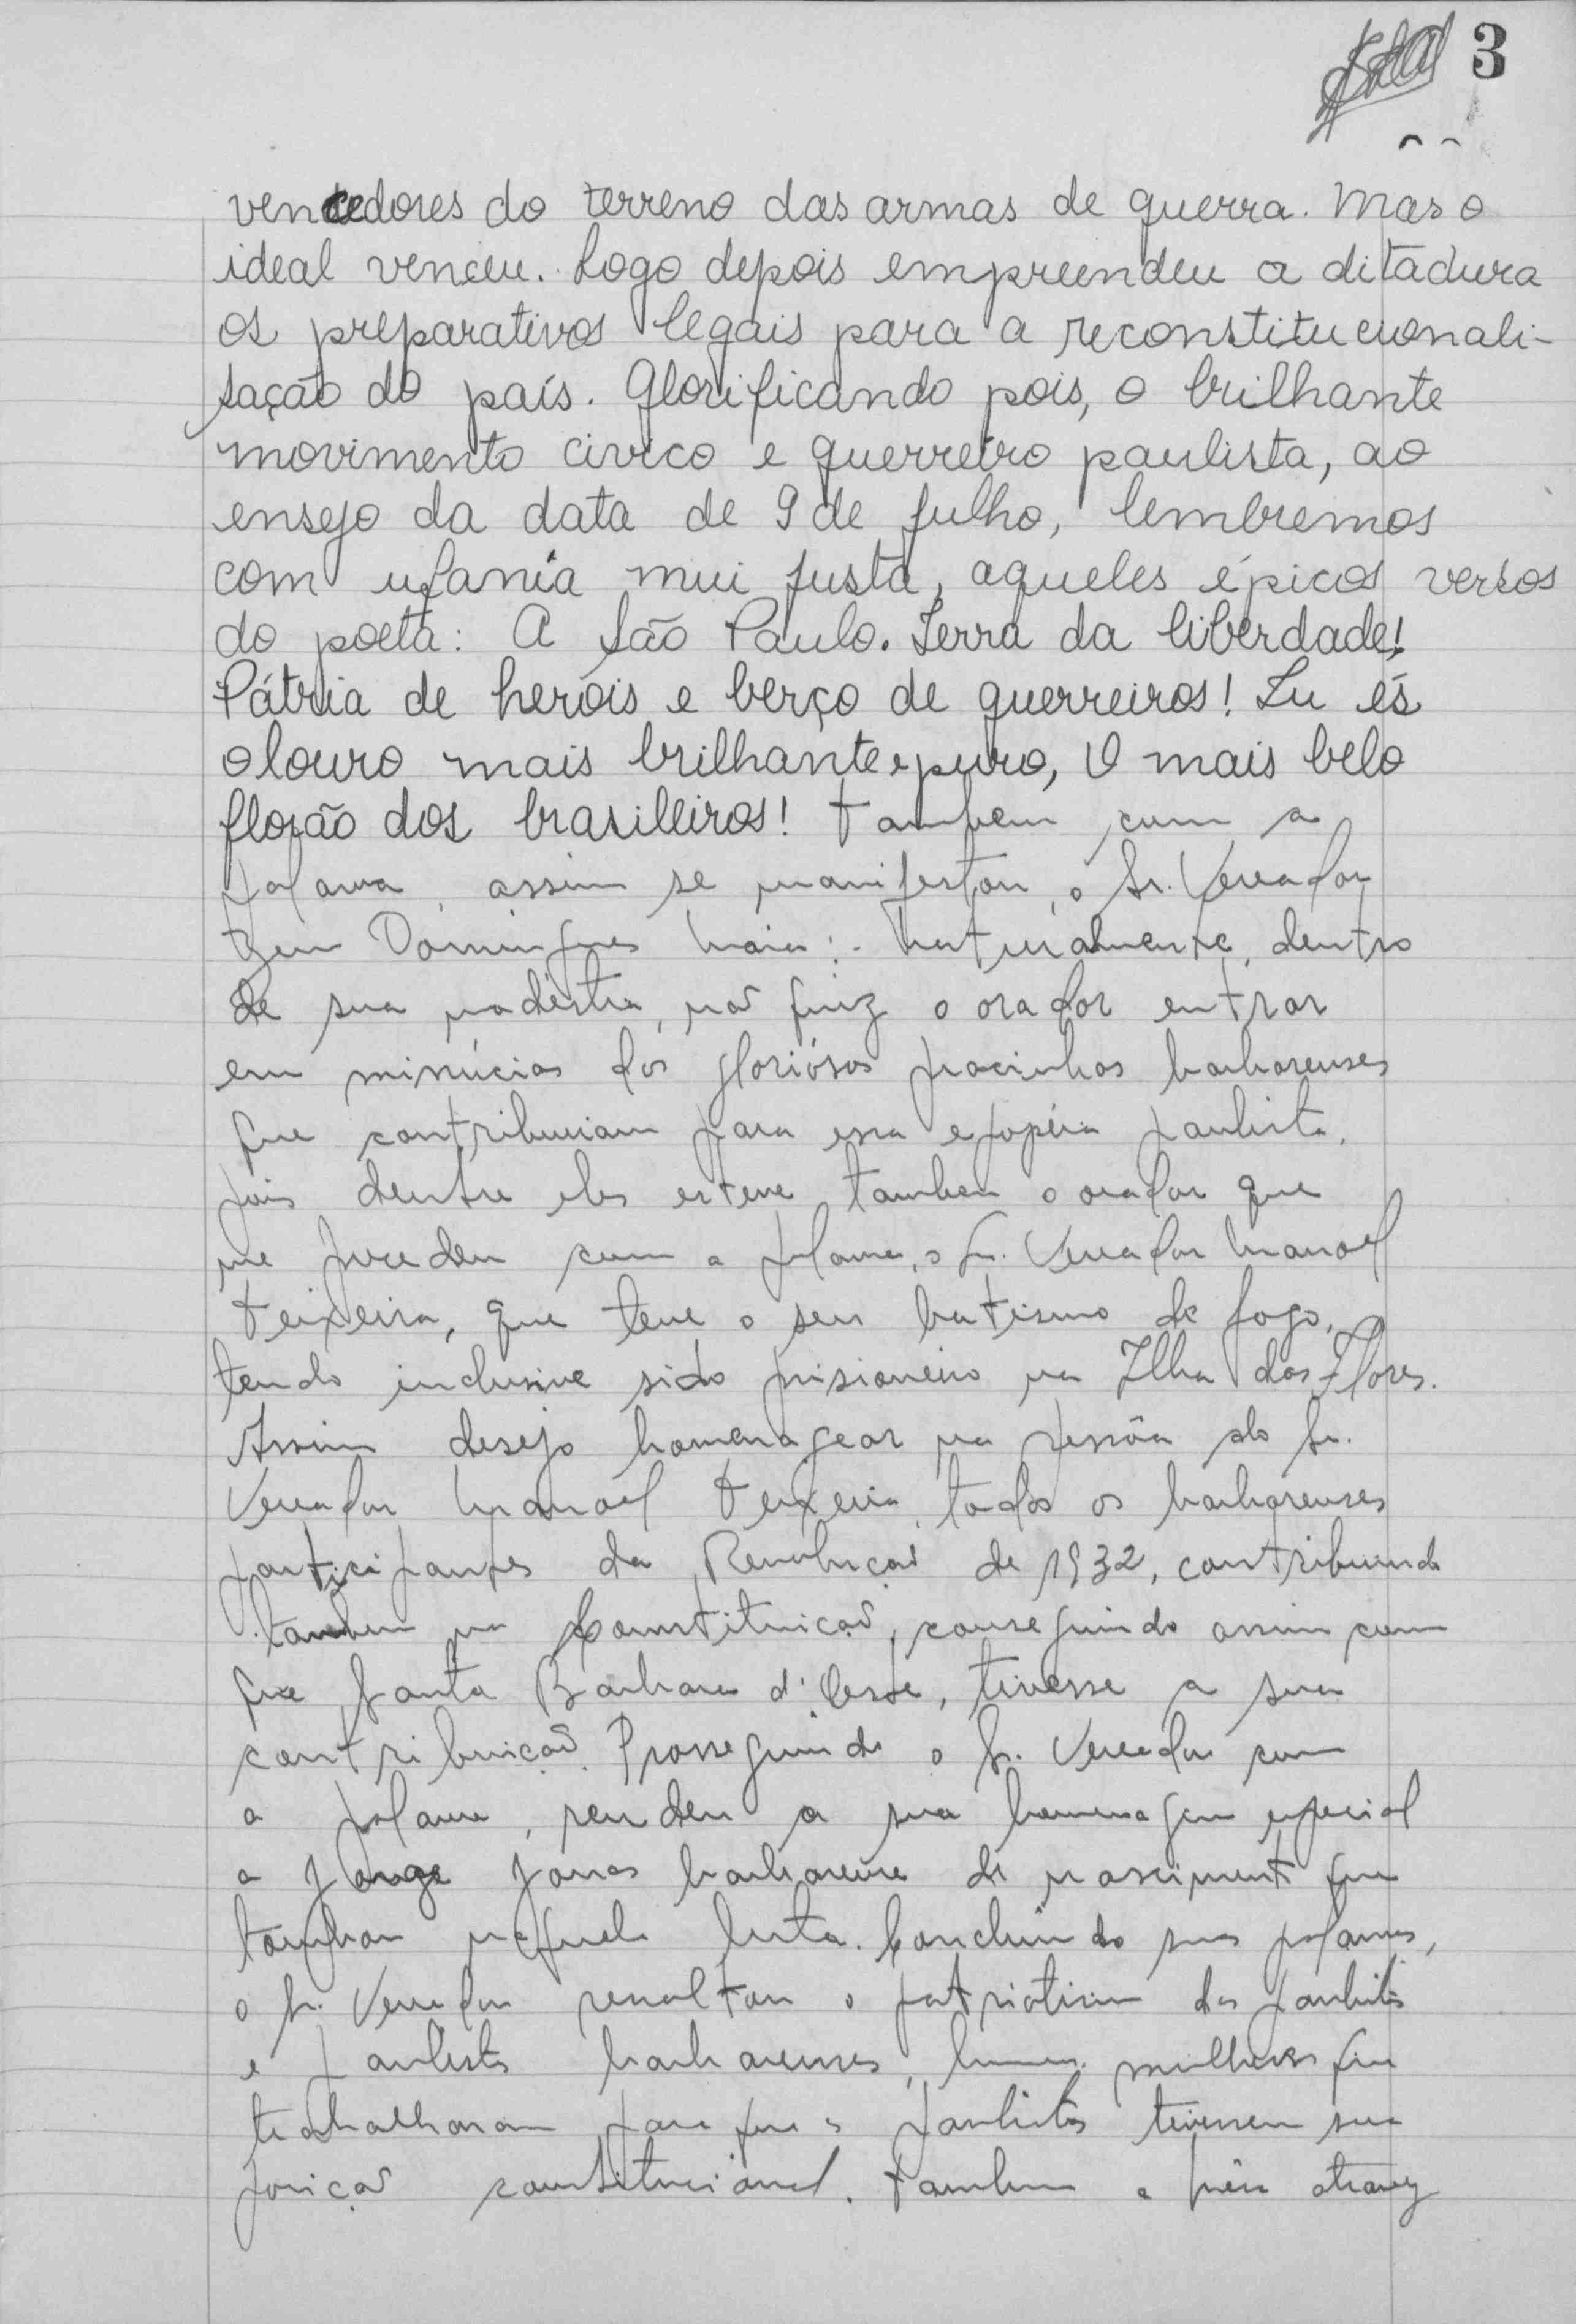 3
vencedores do terreno das armas de guerra. Mas o
ideal venceu. Logo depois empreendeu a ditadura
os preparativos legais para a reconstitucionali-
sação do país. Glorificando pois, o brilhante
movimento civico e guerreiro paulista, ao
ensejo da data de 9 de julho, lembremos
com ufania mui justa, aqueles épicos versos
do poeta: A São Paulo. Terra da liberdade!
Pátria de heróis e berço de guerreiros! Tu és
o louro mais brilhante e puro, O mais belo
florão dos brasileiros! Tambem com a
palavra, assim se manifestou, o Sr. Vereador
Domingues Maia:- Naturalmente, dentro
de sua modéstia, não quiz o orador entrar
em minúcias dos gloriósos pracinhas barbarenses
que contribuiram para essa epopéia paulista,
pois dentre eles esteve tambem o orador que
me precedeu com a palavra, o Sr. Vereador Manoel
Teixeira, que teve o seu batismo de fogo,
tendo inclusive sido prisioneiro na Ilha das Flores.
Assim desejo homenagear na pessôa do Sr.
Vereador Manoel Teixeira, todos os barbarenses
participantes da Revolução de 1932, contribuindo
tambem na Constituição, conseguindo assim com
que Santa Barbara d'Oeste, tivesse a sua
contribuição. Prosseguindo o Sr. Vereador com
a palavra, rendeu a sua homenagem especial
a Jorge Jones barbarense de nascimento que
tombou naquela luta. Concluindo suas palavras,
o Sr. Vereador ressaltou o patriotismo dos paulistas
e paulistas barbarenses, homens mulheres que
trabalharam para que os paulistas tivessem sua
posição constitucional. Tambem a atravez